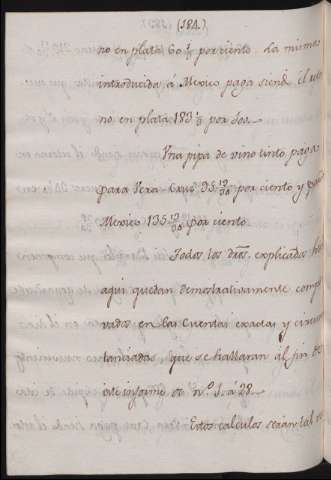 (184.)
no en plata 60 1/2 por ciento. La misma
introducida, á Mexico paga siend. el reto
no en plata 183 1/3 por 100.
Una pipa de vino tinto paga
para Vera-Cruz 35 19/30 por ciento y para
Mexico 135 19/30 por ciento
Todos los dros. explicados has
aqui quedan demostrativamente compro
vados en las Cuentas exactas y circuns
tanciadas, que se hallaran al fin de
este informe de n.º 1. á 28.
Estos calculos serán tal ve